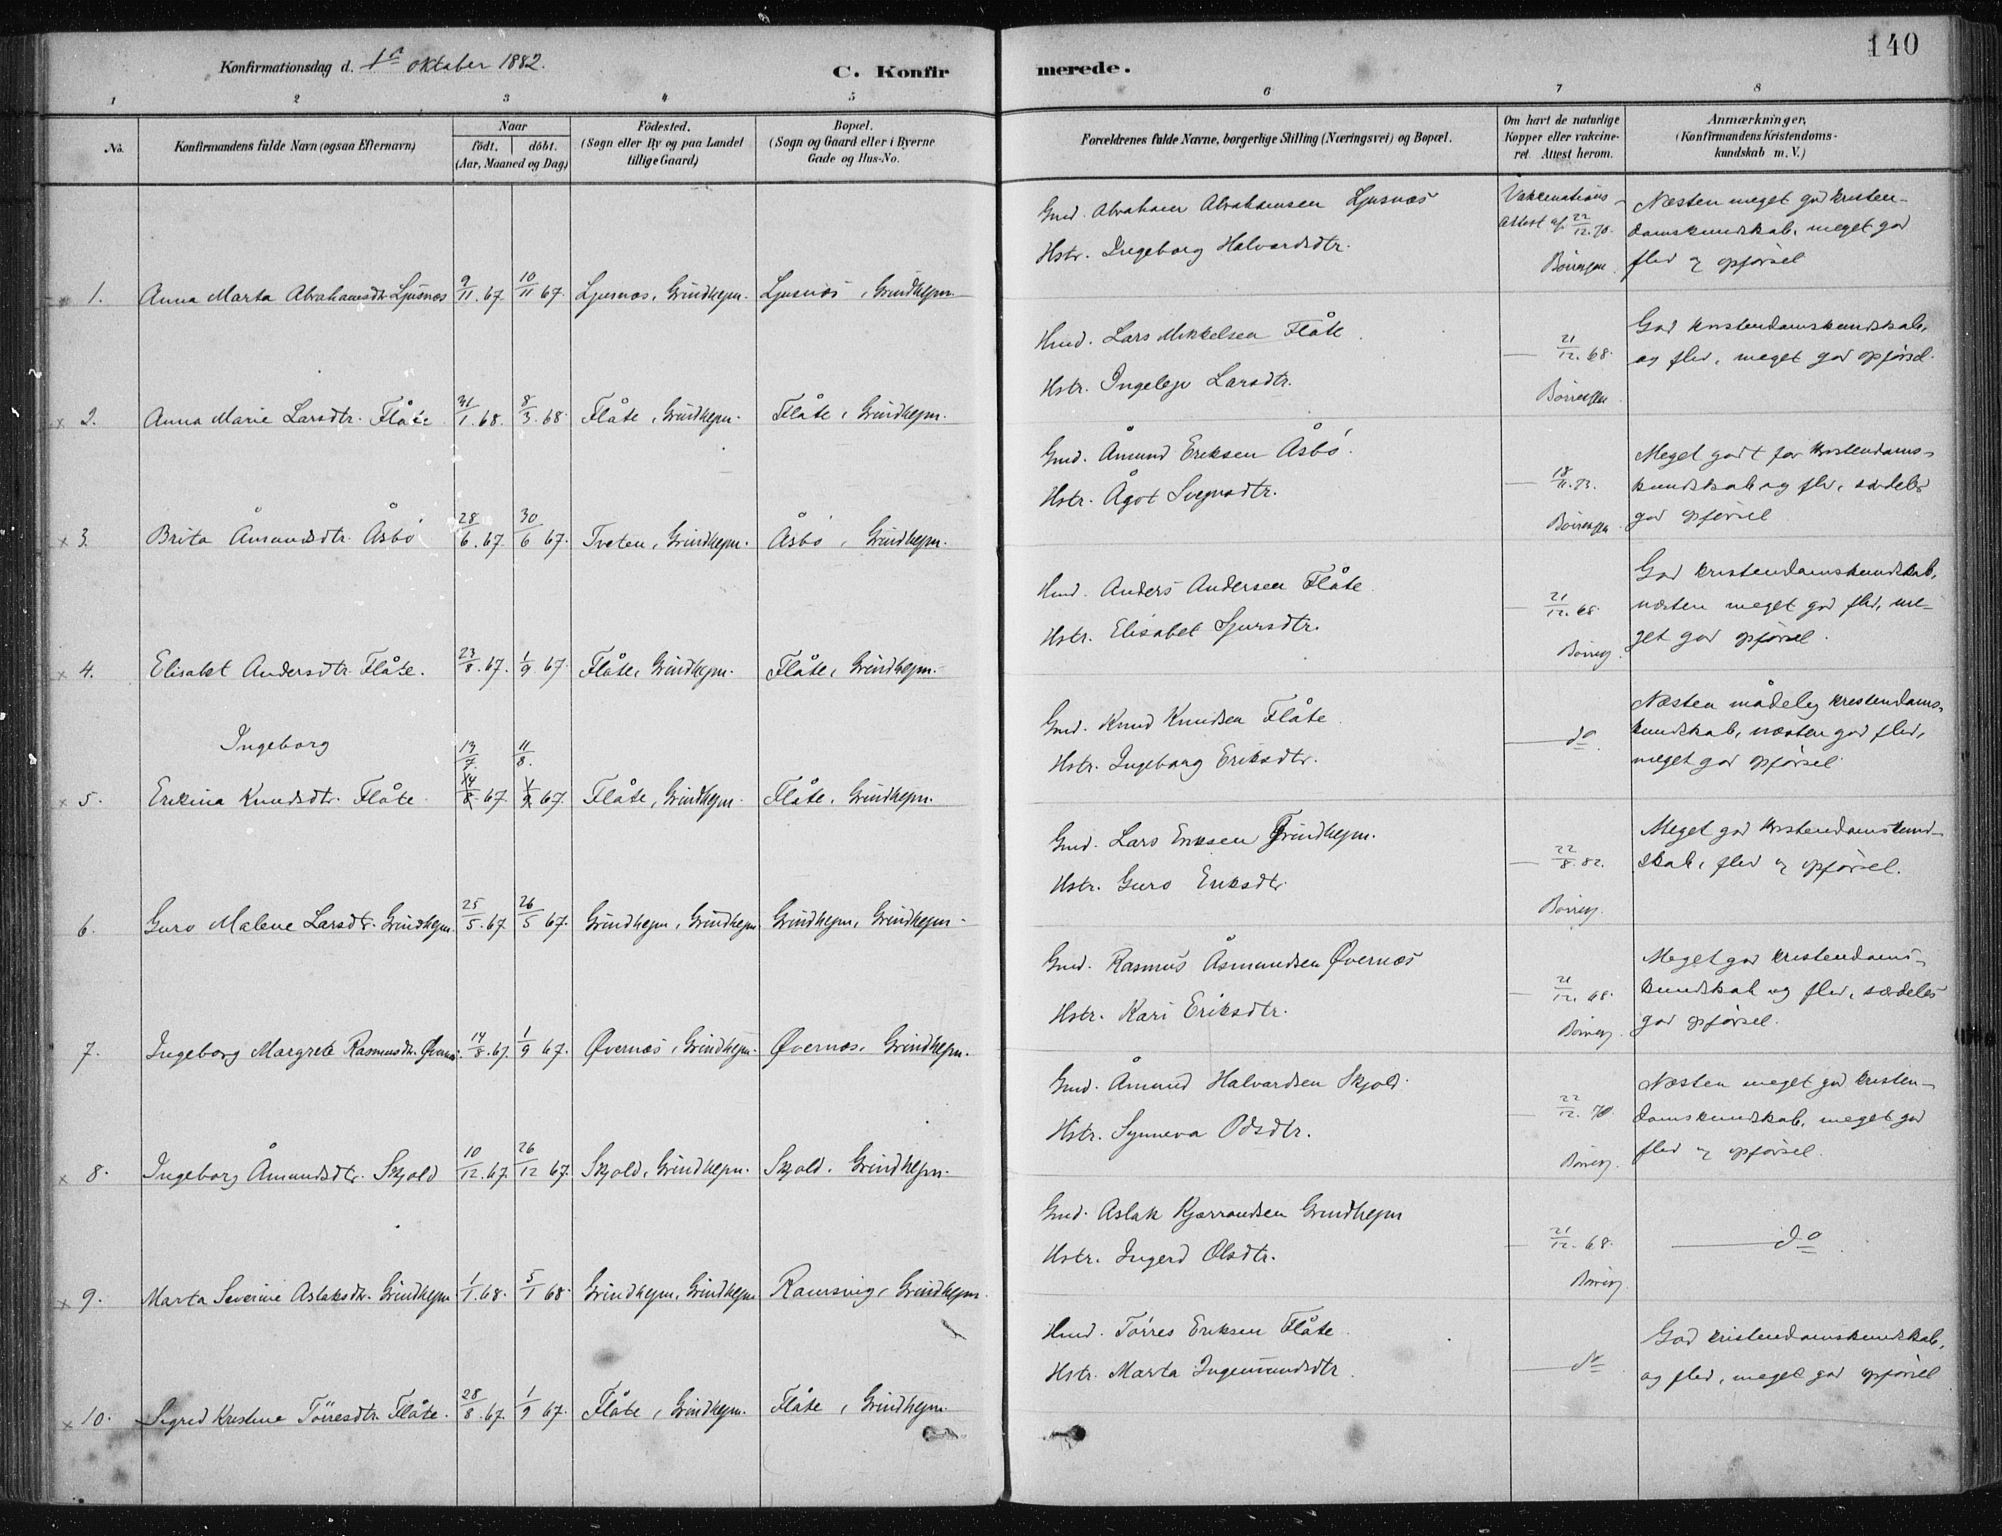 140
Konfirmationsdag d. 1ste oktober 1882.
C. Konfirmerede.
1 2 3 4 5 6 7 8
No.
Konfirmandens fulde Navn (ogsaa Efternavn)
Naar
födt. döbt.
(Aar, Maaned og Dag)
Födested.
(Sogn eller By og paa Landet
tillige Gaard)
Bopæl.
(Sogn og Gaard eller i Byerne
Gade og Hus-No.
Forældrenes fulde Navne, borgerlige Stilling (Næringsvei) og Bopæl.
Om havt de naturlige
Kopper eller vakcine-
ret. Attest herom.
Anmærkninger,
(Konfirmandens Kristendoms-
kundskab m. V.)
1. Anna Marta Abrahamsdtr. Ljusnæs 9/11.67 10/11 67. Ljusnæs, Grindhejm. Ljusnæs, Grindhejm.
Gmd. Abraham Abrahamsen Ljusnæs
Hstr. Ingeborg Halvardsdtr.
Vakcinations-
Attest af 22/12.70.
Næsten meget god kristen-
domskundskab, meget god
flid og opførsel
x 2. Anna Marie Larsdtr. Flåte 31/1.68. 8/3.68. Flåte, Grindhejm. Flåte, Grindhejm.
Hmd. Lars Mikkelsen Flåte
Hstr. Ingelejv Larsdtr.
— 21/12.68.
God kristendomskundskab,
og flid, meget god opførsel.
x 3. Brita Åmundsdtr. Åsbø 28/6.67. 30/6 67. Tveten, Grindhejm. Åsbø, Grindhejm.
Gmd. Åmund Eriksen Åsbø.
Hstr. Ågot Svejnsdtr.
— 18/11.73.
Meget godt for kristendoms-
kundskab og flid, særdeles
god opførsel
x 4. Elisabet Andersdtr. Flåte. 23/8.67. 1/9 67. Flåte, Grindhejm. Flåte, Grindhejm.
Hmd. Anders Andersen Flåte
Hstr. Elisabet Sjursdtr.
— 21/12.68.
God kristendomskundskab,
næsten meget god flid, me-
get god opførsel.
Ingeborg 13/7. 11/8.
x 5. Erikina Knudsdtr. Flåte. 14/8.67 1/9 67 Flåte, Grindhejm. Flåte, Grindhejm.
Gmd. Knud Knudsen Flåte
Hstr. Ingeborg Eriksdtr.
— do.
Næsten mådelig kristendoms-
kundskab, næsten god flid,
meget god opførsel
6. Guro Malene Larsdtr. Grindhejm. 25/5.67 26/5 67. Grindhejm, Grindhejm Grindhejm, Grindhejm.
Gmd. Lars Eriksen Grindhejm.
Hstr. Guro Eriksdtr.
— 22/8.82.
Meget god kristendomskund-
skab, flid og opførsel.
7. Ingeborg Margrete Rasmusdtr. Øvernæs. 14/8.67. 1/9 67. Øvernæs, Grindhejm. Øvernæs, Grindhejm.
Gmd. Rasmus Åsmundsen Øvernæs
Hstr. Kari Eriksdtr.
— 21/12.68.
Meget god kristendoms-
kundskab og flid, særdeles
god opførsel.
x 8. Ingeborg Åmundsdtr. Skjold 10/12.67. 26/12 67. Skjold, Grindhejm. Skjold, Grindhejm.
Gmd. Åmund Halvardsen Skjold.
Hstr. Synneva Odsdtr.
— 22/12.70.
Næsten meget god kristen-
domskundskab, meget god
flid og opførsel.
x 9. Marta Severine Aslaksdtr. Grindhejm 1/1.68. 5/1 68. Grindhejm, Grindhejm Grindhejm.
Gmd. Aslak Kjærrandsen Grindhejm
Hstr. Ingerd Olsdtr.
— 21/12.68.
— do.
x 10. Sigrid Kristine Törresdtr. Flåte. 28/8.67. 1/9 67. Flåte, Grindhejm. Flåte, Grindhejm.
Hmd. Törres Eriksen Flåte
Hstr. Marta Ingemundsdtr.
— do
God kristendomskundskab,
og flid, meget god opførsel